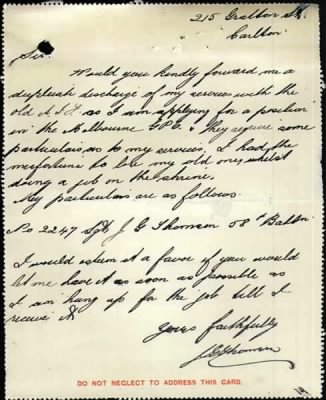 215 Grattan St.
Carlton.
Sir.
Would you kindly forward me a
duplicate discharge of my services with the
old A.I.F. as I am applying for a position
in the Melbourne G.P.O. & they require some
particulars as to my services, I had the
misfortune to lose my old one, whilst
doing a job on the shrine.
My particulars are as follows.
No 2247 Sgt J G Thomson 58th Battn.
I would esteem it a favor if you would
let me have it as soon as possible as
I am hung up for the job till I
receive it
Yours faithfully
J G Thomson
DO NOT NEGLECT TO ADDRESS THIS CARD.